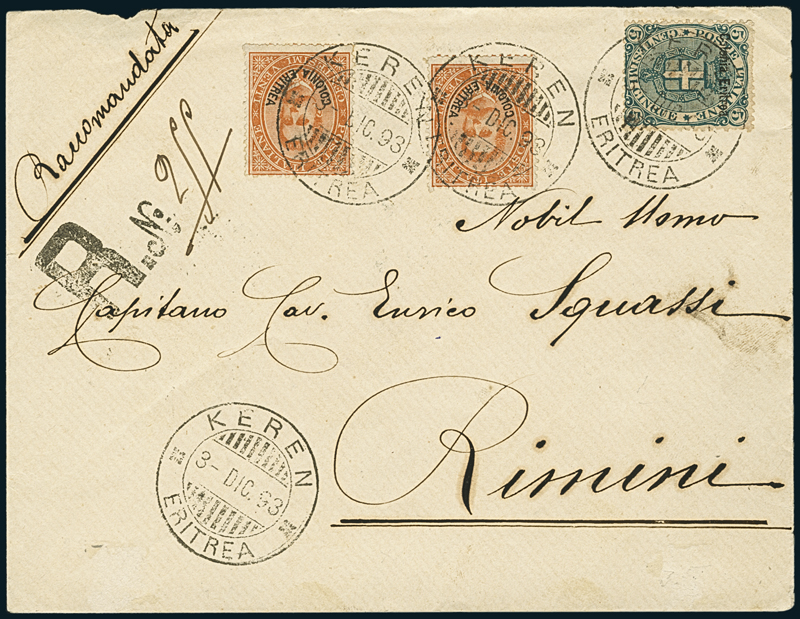 Raccomandata
R. No. 255
KEREN
DIC. 93
ERITREA
COLONIA ERITREA
KEREN
DIC. 93
ERITREA
COLONIA ERITREA
POSTE ITALIANE
5 5
CINQUE
ERITREA
Nobil Uomo
Capitano Cav. Enrico Squassi
Rimini
KEREN
3- DIC. 93
ERITREA